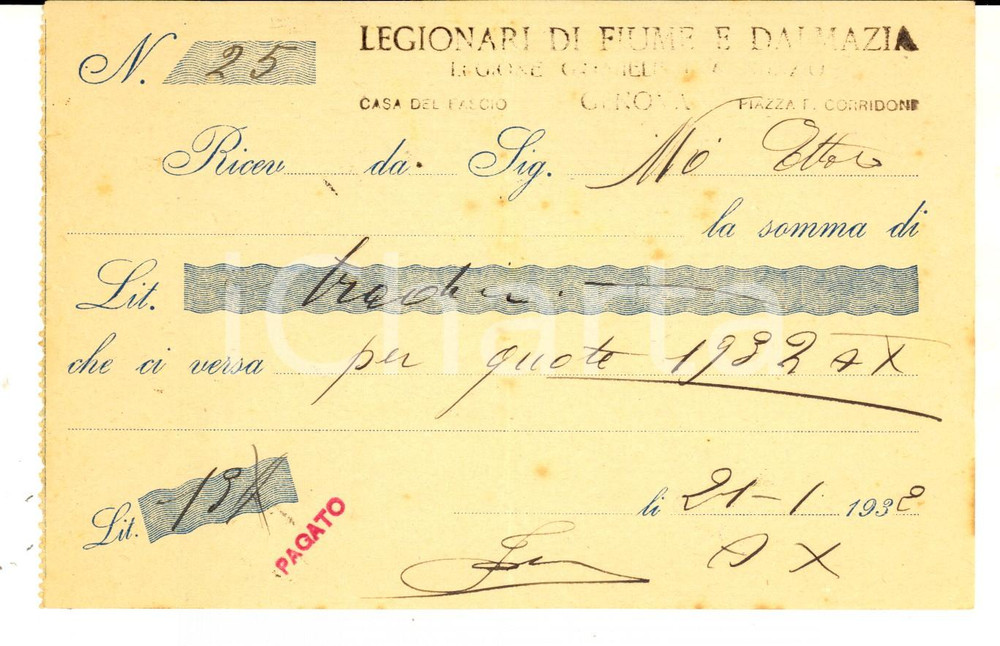 N. 25
LEGIONARI DI FIUME E DALMAZIA
LEGIONE
CASA DEL FASCIO GENOVA PIAZZA F. CORRIDONI
Ricev da Sig. Ettore
la somma di
Lit. tredici
che ci versa per quote 1932 A X
Lit. 13
PAGATO
li 21-1 1932
A X
iCharta